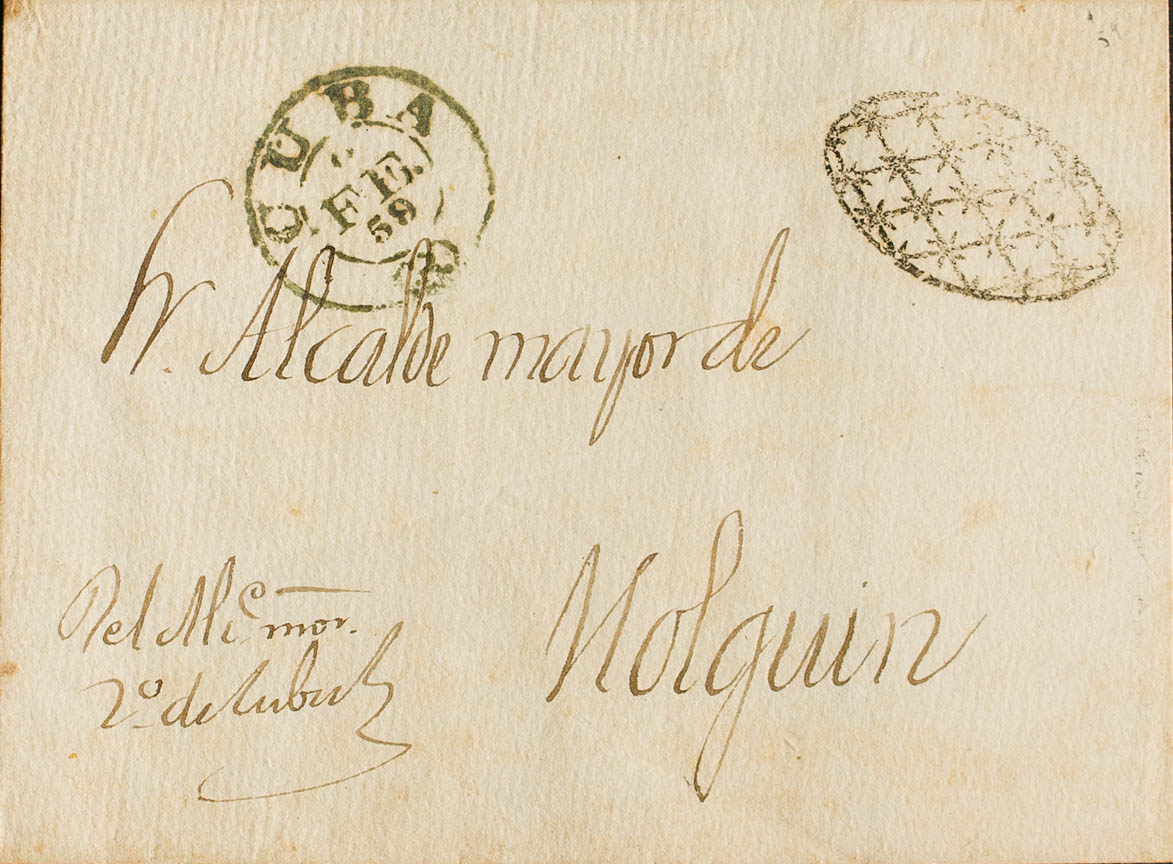 CUBA
FE.
59
Sr. Alcalde mayor de
Holguin
Del Alce mor.
2º de Cuba